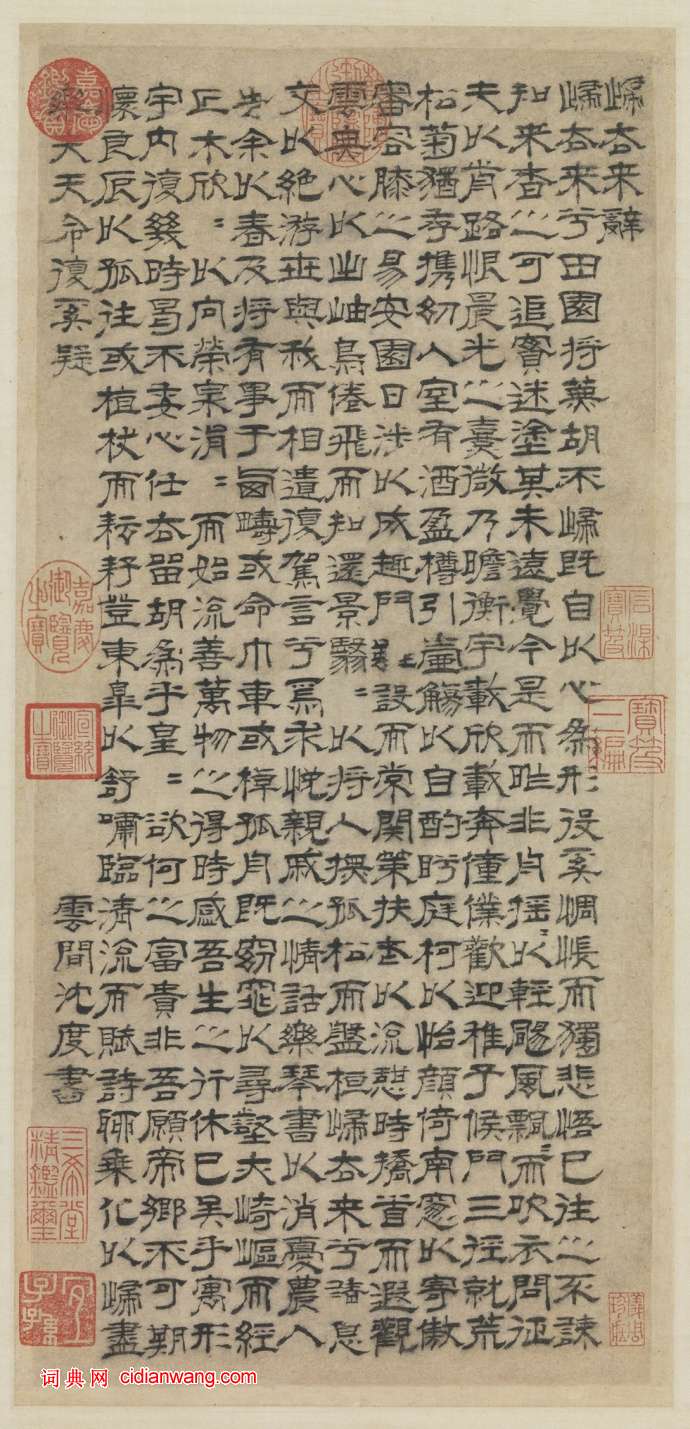 歸去來辭
歸去來兮田園將蕪胡不歸既自以心為形役奚惆悵而獨悲悟已往之不諫
知來者之可追實迷塗其未遠覺今是而昨非舟搖〻以輕颺風飄〻而吹衣問征
夫以前路恨晨光之熹微乃瞻衡宇載欣載奔僮僕歡迎稚子候門三徑就荒
松菊猶存攜幼入室有酒盈樽引壺觴以自酌眄庭柯以怡顏倚南窗以寄傲
審容膝之易安園日涉以成趣門雖設而常關策扶老以流憩時矯首而遐觀
雲無心以出岫鳥倦飛而知還景翳〻以將入撫孤松而盤桓歸去來兮請息
交以絕游世與我而相遺復駕言兮焉求悅親戚之情話樂琴書以消憂農人
告余以春及將有事于西疇或命巾車或棹孤舟既窈窕以尋壑夫崎嶇而經
丘木欣〻以向榮泉涓〻而始流善萬物之得時感吾生之行休已矣乎寓形
宇內復幾時曷不委心任去留胡為乎皇〻欲何之富貴非吾願帝鄉不可期
懷良辰以孤往或植杖而耘耔登東皋以舒嘯臨清流而賦詩聊乘化以歸盡
樂夫天命復奚疑
雲間沈度書
寶笈三編
嘉慶鑑賞
嘉慶御覽之寶
宣統御覽之寶
三希堂精鑑璽
宜子孫
词典网 cidianwang.com